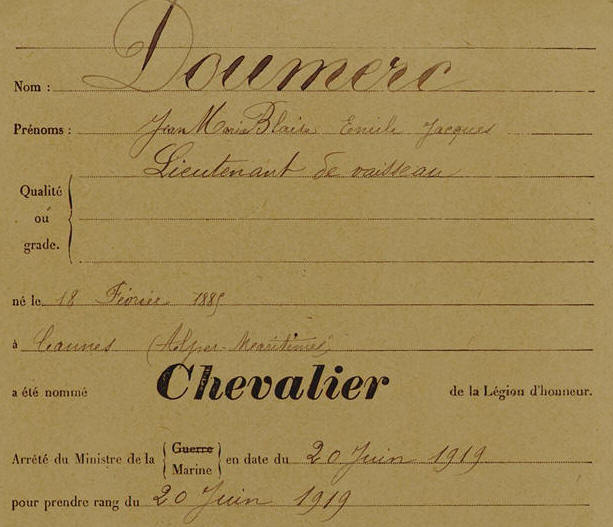 Nom : Doumerc
Prénoms : Jean Marie Blaise Emile Jacques
Lieutenant de vaisseau
Qualité
ou
grade.
né le 18 Février 1885
à Cannes (Alpes-Maritimes)
a été nommé Chevalier de la Légion d'honneur.
Arrêté du Ministre de la { Guerre Marine } en date du 20 Juin 1919
pour prendre rang du 20 Juin 1919